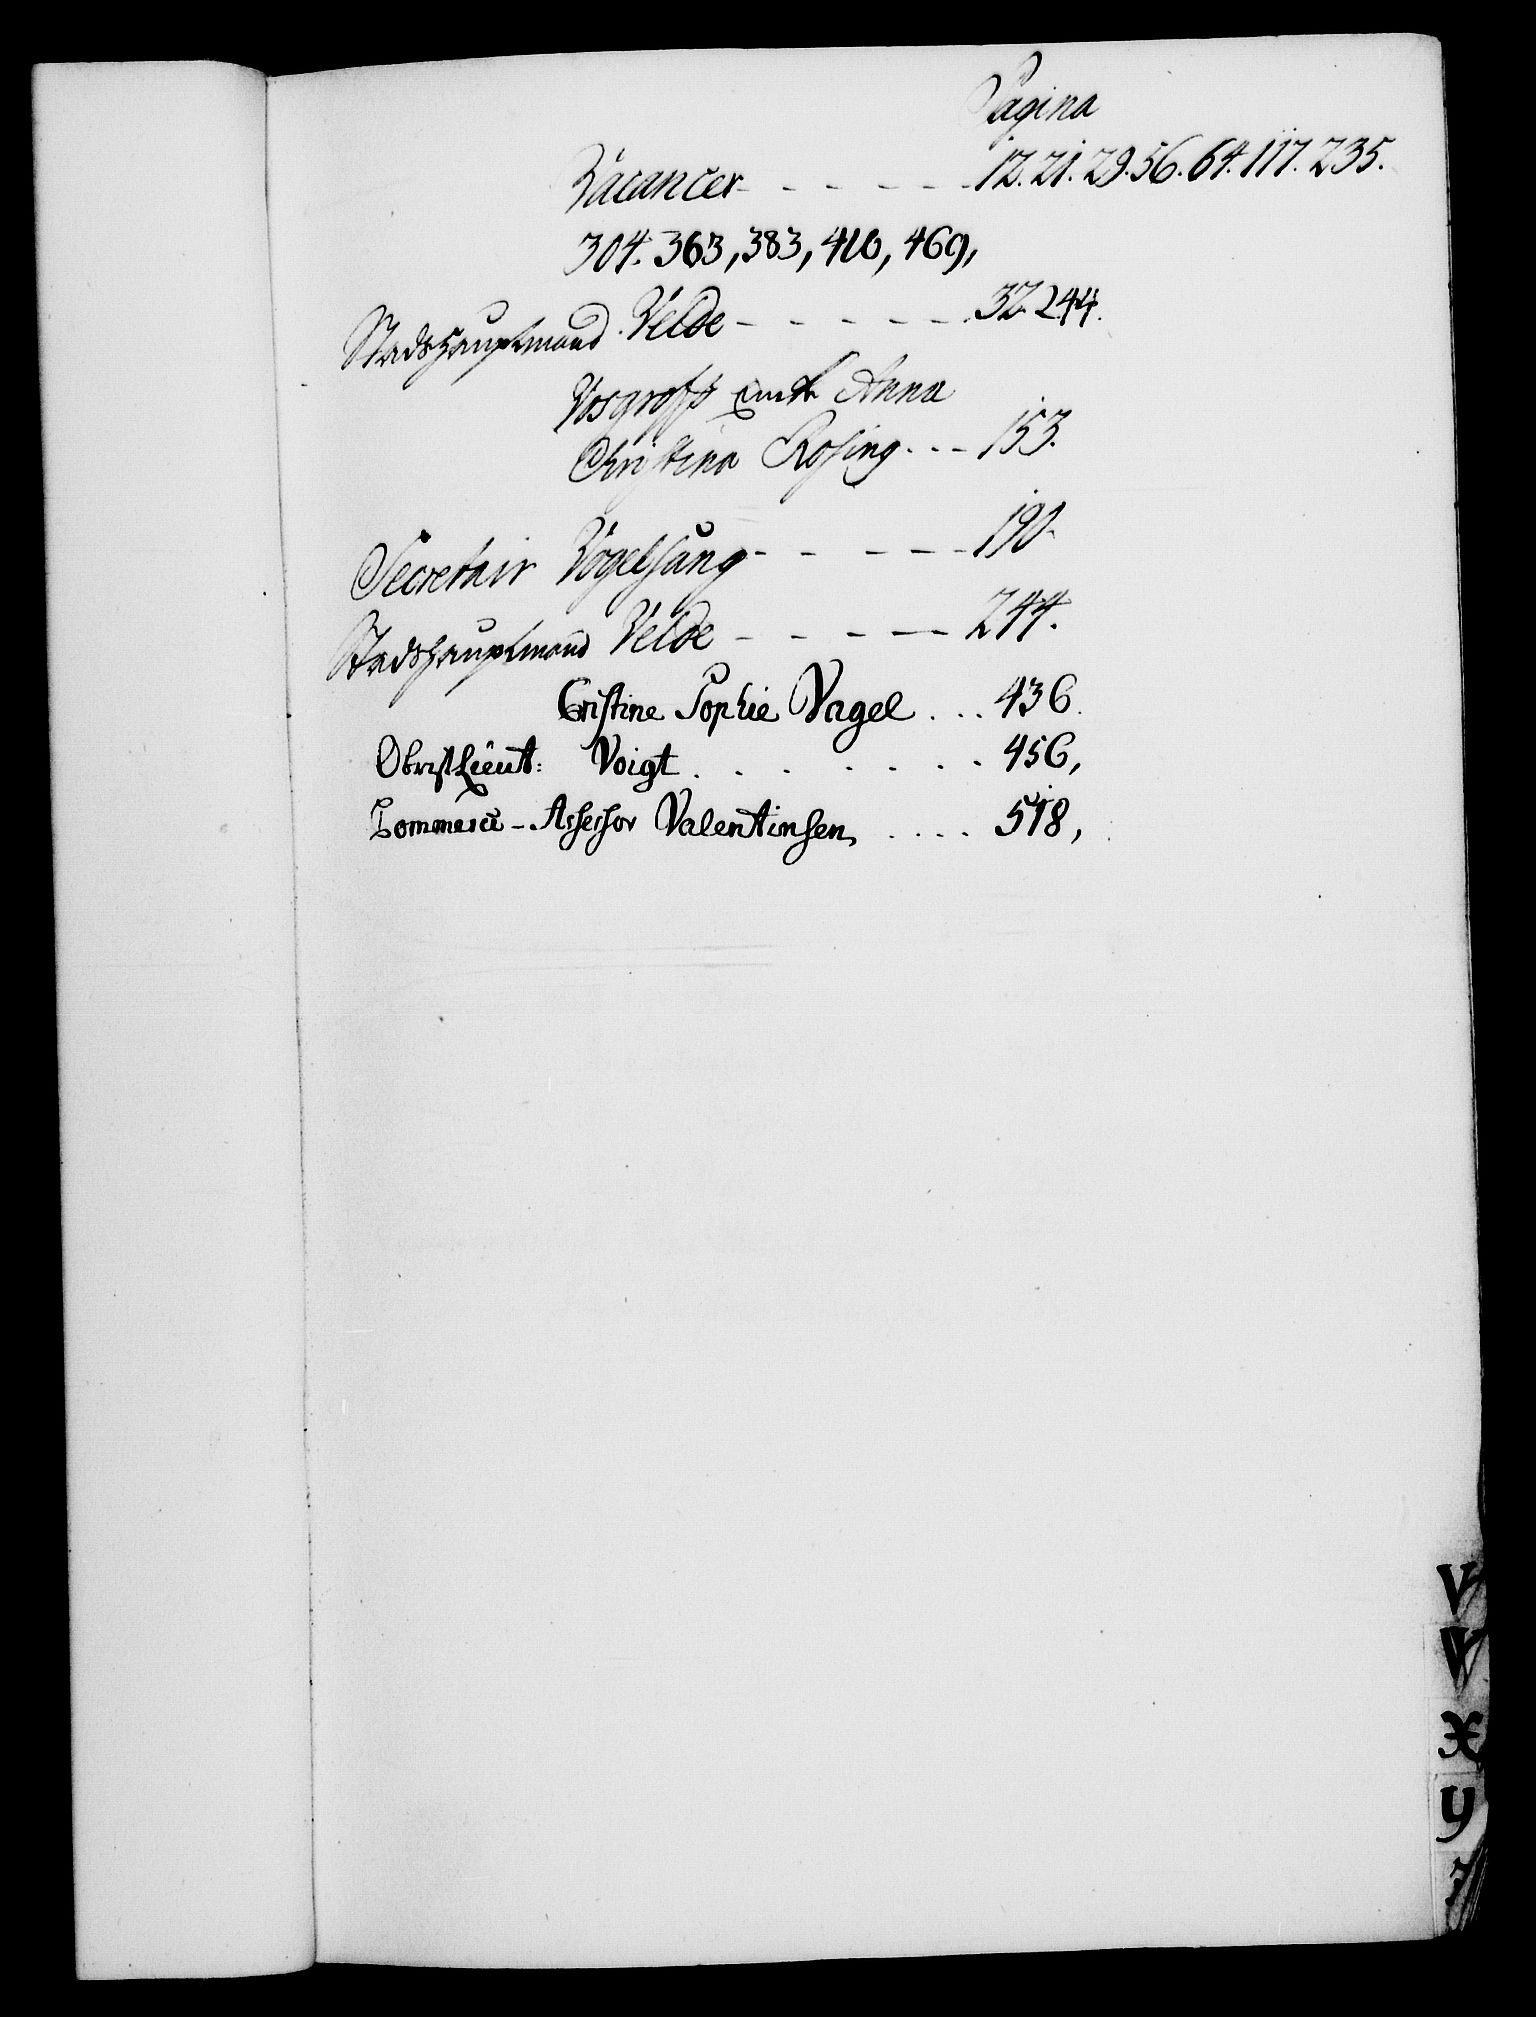 Pagina
Vacancer - - - - - 12. 21. 29. 56. 64. 117. 235.
304. 363, 383, 410, 469,
Stadshauptmand Velde - - - - - 32 244.
Vosgrofs Anna
Christina Rosing - - - 153.
Secretair Vogelsang - - - - - 190.
Stadshauptmand Velde - - - - 244.
Cristine Sophie Vagel . . . 436.
ObristLieut: Voigt . . . . . . . 456,
Commerce-Assessor Valentinsen . . . . 518,
V
W
X
Y